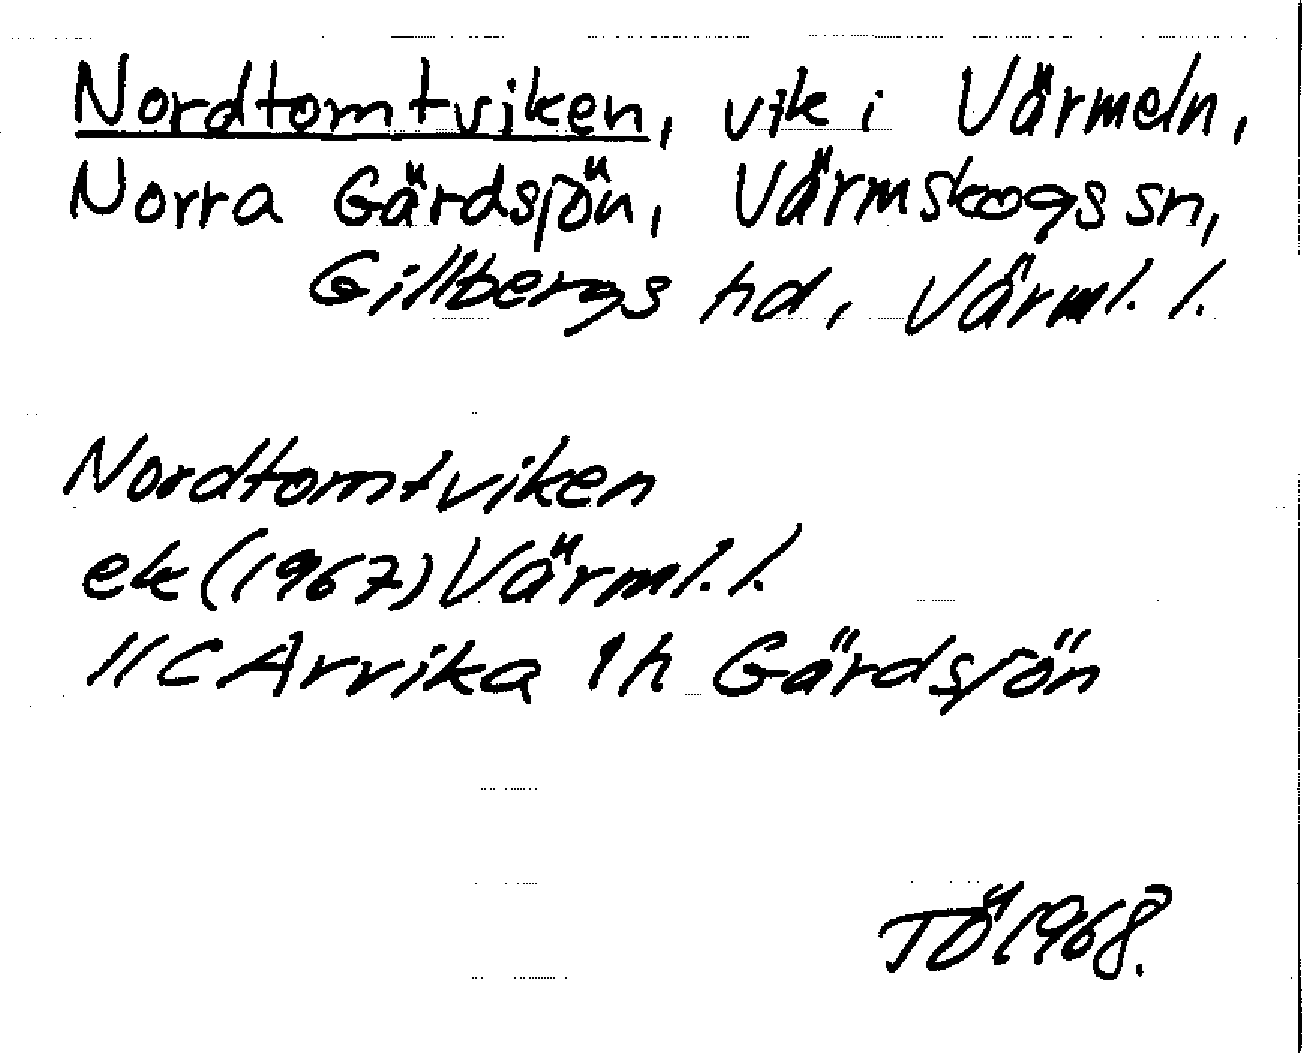 Nordtomtviken, vik i Värmeln,
Norra Gärdsjön, Värmskogs sn,
Gillbergs hd, Värml. l.
Nordtomtviken
ek (1967) Värml. l.
11 C Arvika 1h Gärdsjön
TÖ 1968.